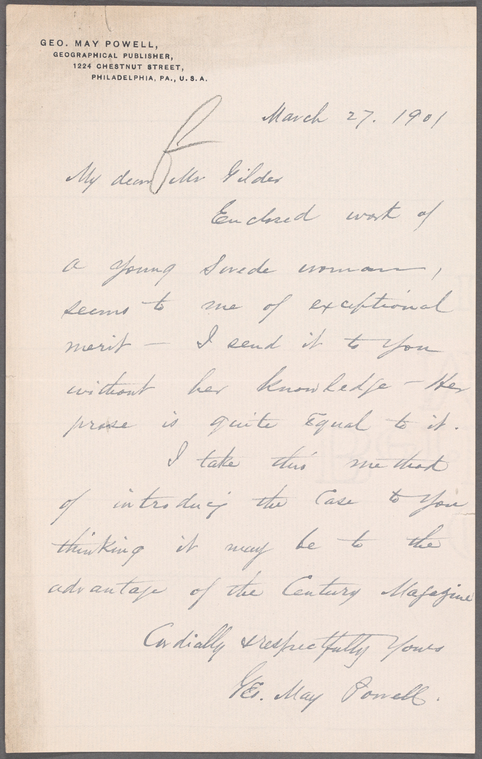 GEO. MAY POWELL,
GEOGRAPHICAL PUBLISHER,
1224 CHESTNUT STREET,
PHILADELPHIA, PA., U.S.A.
March 27. 1901
My dear Mr Gilder
Enclosed work of
a young Swede woman,
seems to me of exceptional
merit – I send it to you
without her knowledge – Her
prose is quite Equal to it.
I take this method
of introducing the Case to you
thinking it may be to the
advantage of the Century Magazine
Cordially & respectfully Yours
Geo. May Powell.